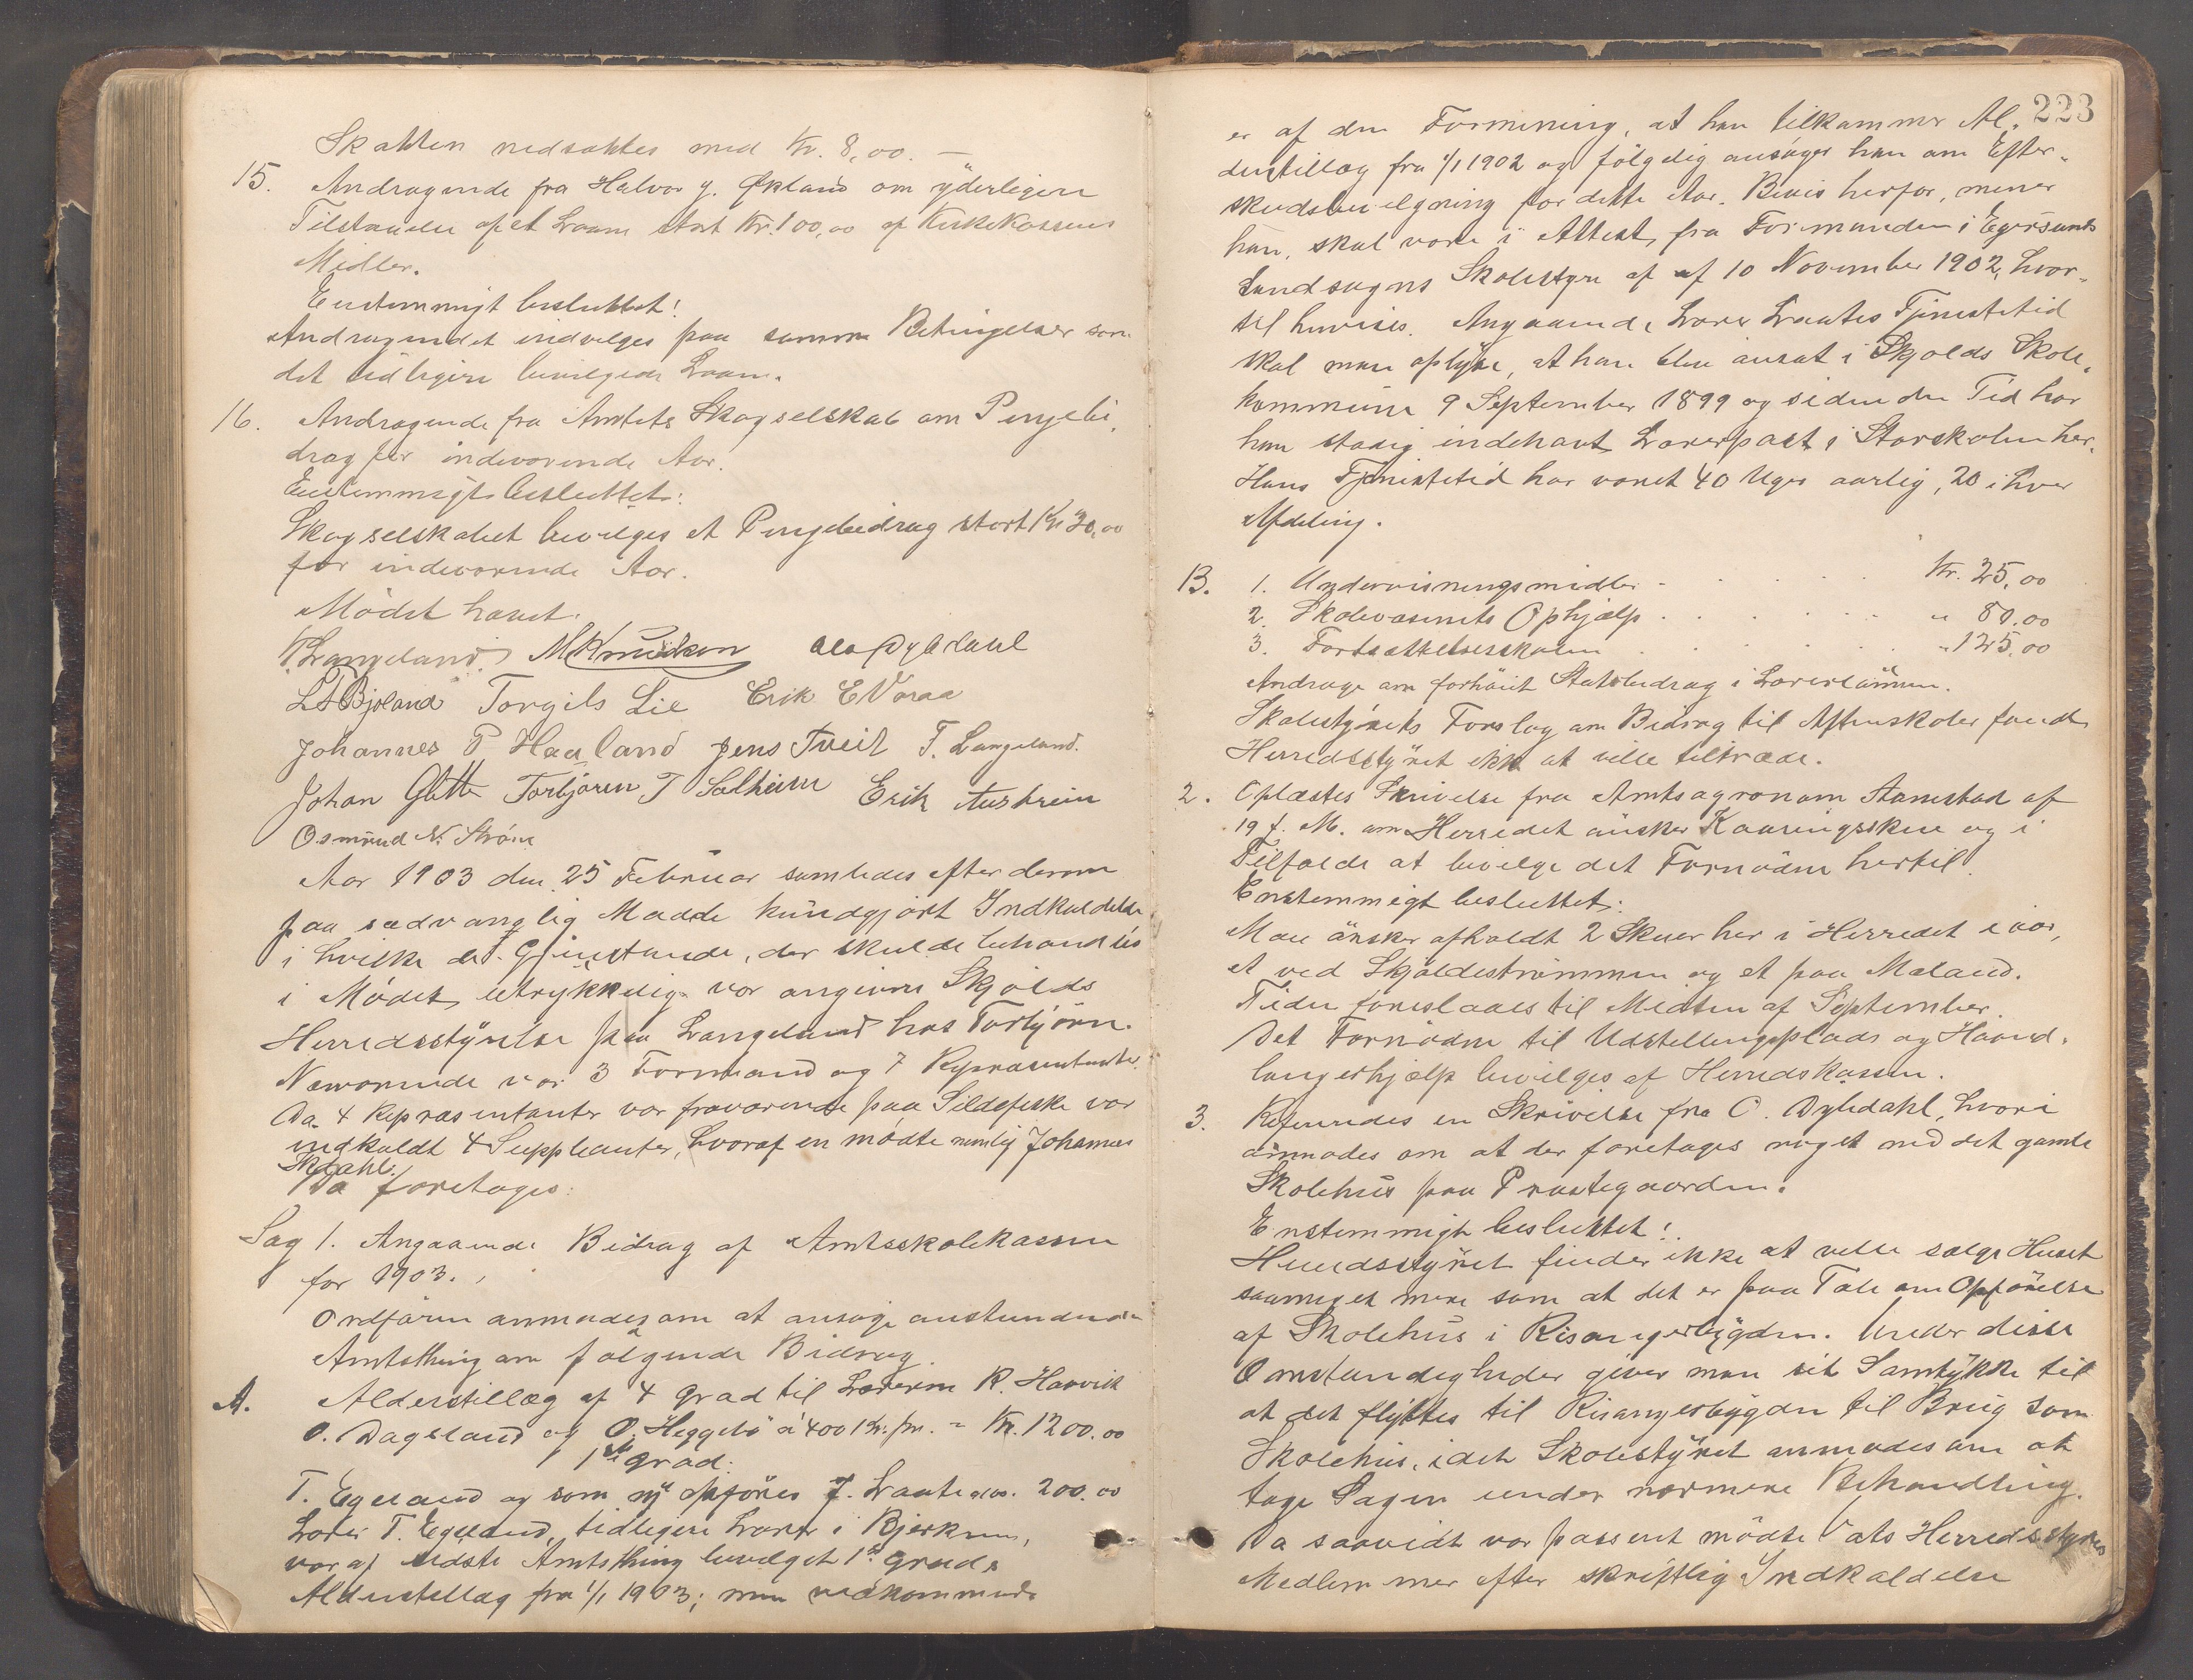 Skatten nedsattes med Kr. 8,00. —
15. Andragende fra Halvor J. Økland om yderligere
Tilstaaelse af et Laan stort Kr. 100,00 af Kirkekassens
Midler.
Enstemmigt besluttet!
Andragendet indvilges paa samme Betingelser som
det tidligere bevilgede Laan.
16. Andragende fra Amtets Skogselskab om Pengebi-
drag for indeværende Aar.
Enstemmigt besluttet:
Skogselskabet bevilges et Pengebidrag stort Kr 30,00
for indeværende Aar.
Mödet hævet.
T. Langeland. M Knudsen Ola Dybdahl
L A Bjoland Torgils Lie Erik E Varaa
Johannes P Haaland Jens Tveit T. Langeland.
Johan Gøtte Torbjørn T Solheim Erik Austreim
Osmund N. Strøm
Aar 1903 den 25 Februar samledes efter denne
paa sædvanglig Maade kundgjort Indkaldelse
i hvilke de Gjenstande, der skulde behandles
i Mödet, utrykkelig var angivne Skjolds
Herredsstyrelse paa Langeland hos Torbjörn.
Nærværende var 3 Formænd og 7 Repræsentanter.
Da 4 Repræsentanter var fraværende paa Sildefiske var
indkaldt 4 Suppleanter, hvoraf en mödte nemlig Johannes
Skjdahl.
Da foretoges:
Sag 1. Angaaende Bidrag af Amtsskolekassen
for 1903.
Ordføren anmodes om at ansøge anstundende
Amtsthing om følgende Bidrag.
A. Alderstillæg af 4 Grad til Lærerne R. Haavik
O. Dagsland og O. Heggebö á 400 Kr. pr. = Kr. 1200.00
1ste Grad:
T. Egeland og som ny opføres J. Laate 200.00
Lærer T. Egeland, tidligere Lærer i Bjerkrem,
var af sidste Amtsthing bevilget 1ste Grads
Alderstillæg fra 1/1 1903; men vedkommende
223
er af den Formening, at han tilkommer Al-
derstillæg fra 1/1 1902 og fölgelig ansöger han om Efter-
skudsbevilgning for dette Aar. Bevis herfor, mener
han, skal være i Attest fra Formanden i Egersunds
Landsogns Skolestyre af af 10 November 1902, hvor-
til henvises. Angaaende Lærer Laates Tjenestetid
skal man oplyse, at han blev ansat i Skjolds Skole-
kommune 9 September 1899 og siden den Tid har
han stadig indehavt Lærerpost i Storskolen her.
Hans Tjenestetid har været 40 Uger aarlig, 20 i hver
Afdeling.
B. 1. Undervisningsmidler . . . . . Kr. 25,00
2. Skolevæsenets Ophjælp . . . . . " 80.00
3. Fortsættelsesskolen . . . . . " 125,00
Andrage om forhöiet Statsbidrag i Lærerlönnen.
Skolestyrets Forslag om Bidrag til Aftenskoler fandt
Herredsstyret ikke at ville tiltræde.
2. Oplæstes Skrivelse fra Amtsagronom Stamstad af
19 f. M. om Herredet ønsker Kaaringsskue og i
Tilfælde at bevilge det Fornödne hertil.
Enstemmigt besluttet:
Man ønsker afholdt 2 Skuer her i Herredet i aar,
et ved Skjoldestrømmen og et paa Mæland.
Tiden foreslaaes til Midten af September.
Det Fornödne til Udstellingsplads og Haand-
langerhjælp bevilges af Herredskassen.
3. Refereredes en Skrivelse fra O. Dybdahl, hvori
anmodes om at der foretages noget med det gamle
Skolehus paa Præstegaarden.
Enstemmigt besluttet:
Herredsstyret finder ikke at ville sælge Huset
saameget mere som at det er paa Tale om Opførelse
af Skolehus i Risangerbygden. Under disse
Omstændigheder giver man sit Samtykke til
at det flyttes til Risangerbygden til Brug som
Skolehus, idet Skolestyret anmodes om at
tage Sagen under nærmere Behandling.
Da saavidt var passeret mødte Vats Herredsstyres
Medlemmer efter skriftlig Indkaldelse